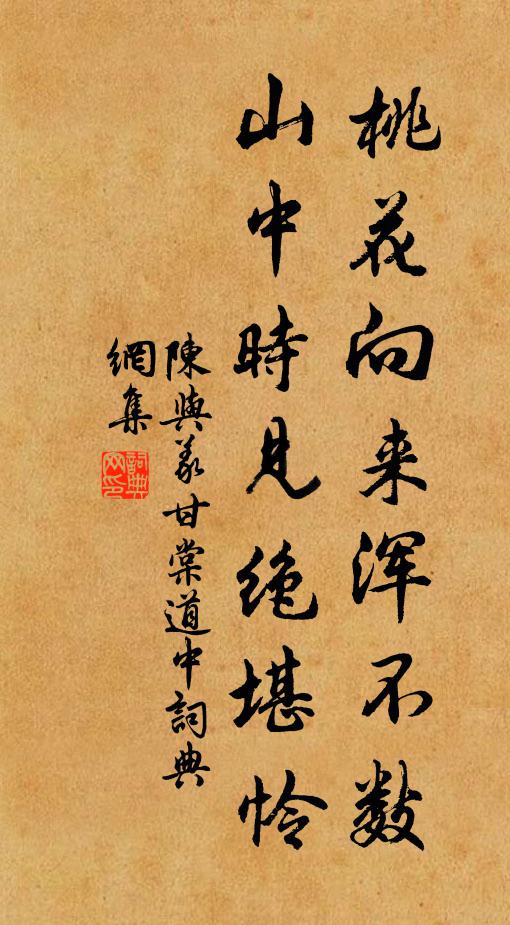 桃花向来浑不数
山中時見绝堪怜
陳與義甘棠道中詞典
網集
詞典
网印